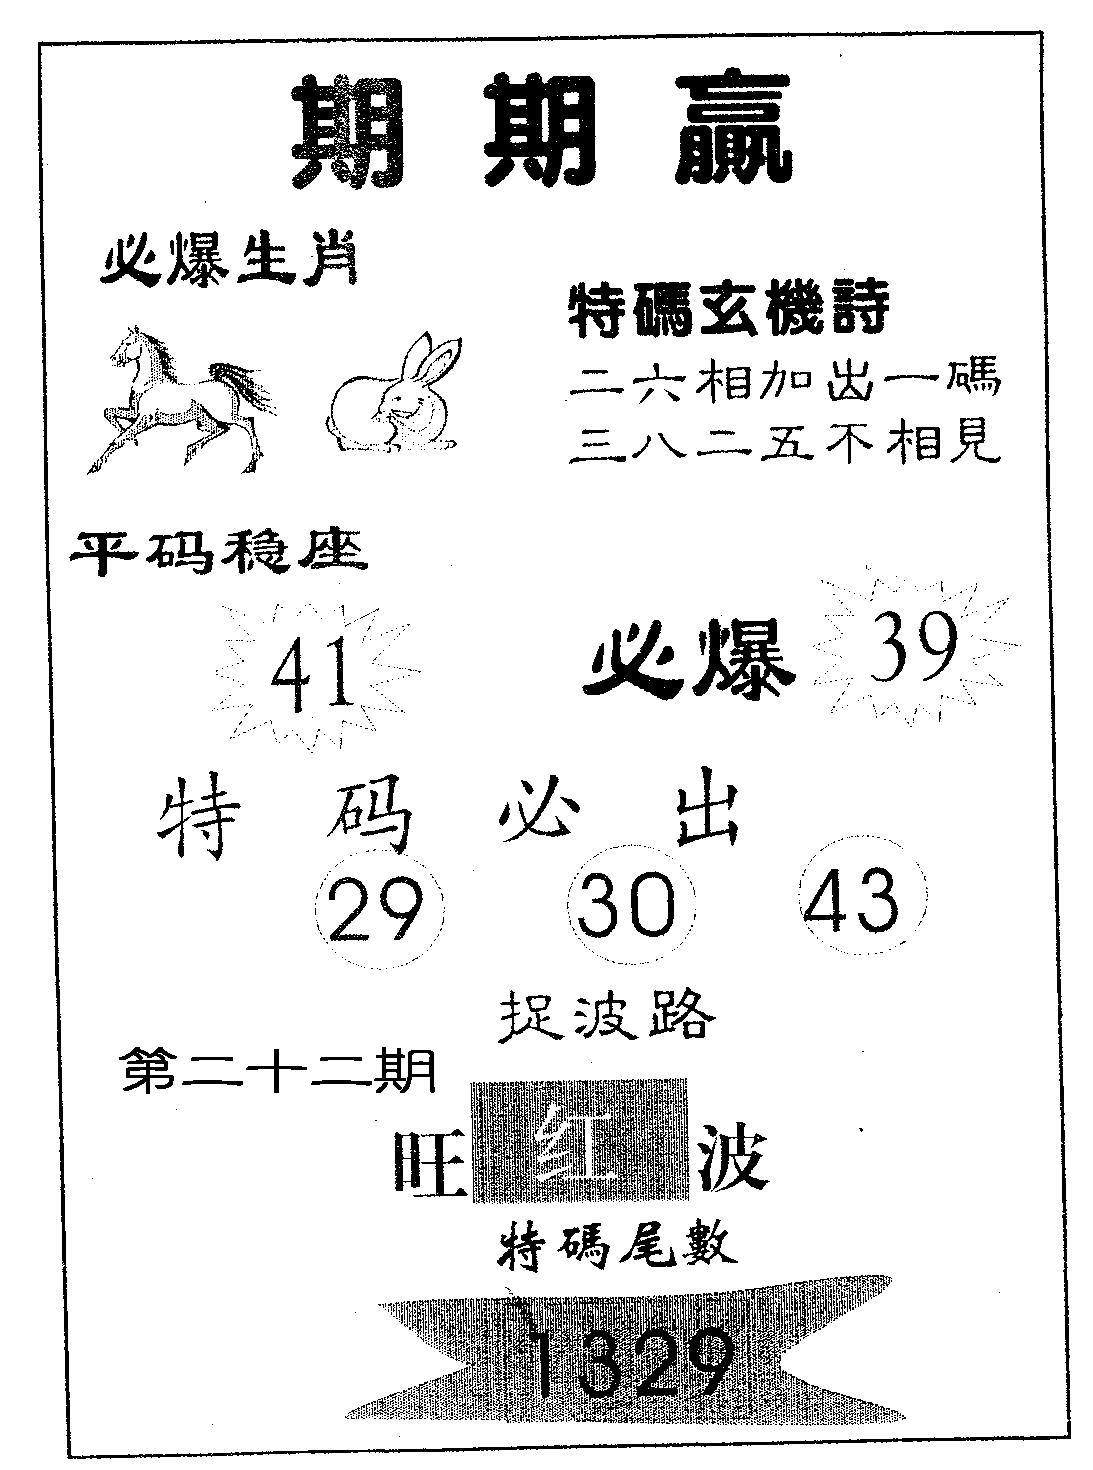 期期贏
必爆生肖
特碼玄機詩
二六相加出一碼
三八二五不相見
平码稳座
41
必爆 39
特码必出
29 30 43
捉波路
第二十二期
旺红波
特碼尾數
1329